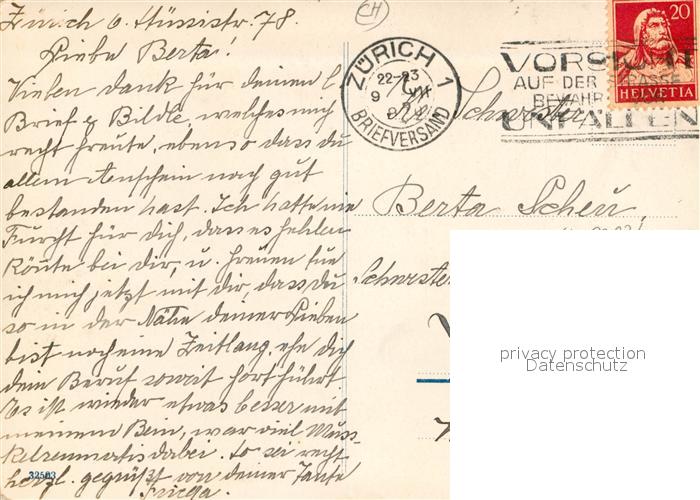 Zürich 6 Hüssistr. 78.
CH
Liebe Berta!
Vielen Dank für deinen l
Brief & Bildle, welches mich
recht freute, ebenso dass du
allem Anschein nach gut
bestanden hast. Ich hatte nie
Furcht für dich, dass es fehlen
könnte bei dir, u. freuen tue
ich mich jetzt mit dir, dass du
so in der Nähe deiner Lieben
bist noch eine Zeitlang, ehe dich
dein Beruf soweit fort führt
Es ist wieder etwas besser mit
meinem Bein, war viel Mus-
kelreumatis dabei. So sei recht
herzl. gegrüßt von deiner Tante
Frieda.
32503
ZÜRICH 1
22-23
9 VII
BRIEFVERSAND
VORSICHT
AUF DER STRASSE
BEWAHRT VOR
UNFÄLLEN
20
HELVETIA
Schwester
Berta Scheu
Schwester
privacy protection
Datenschutz